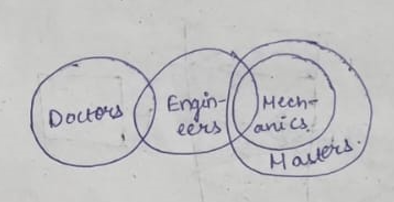 Doctors
Engin-
eers
Mech-
anics.
Masters.